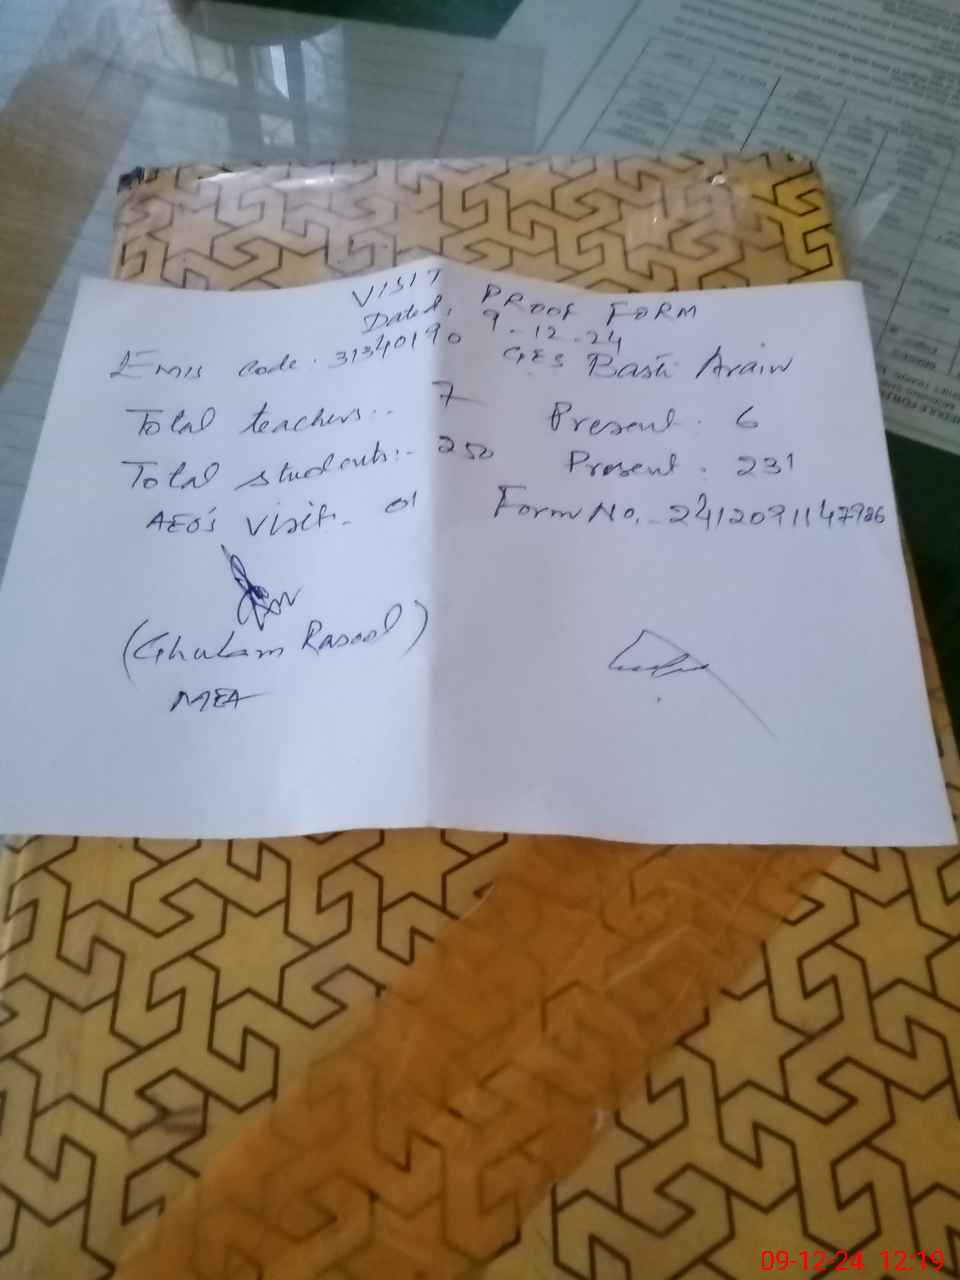 VISIT PROOF FORM
Dated, 9-12-24
EMIS Code. 31340190 GES Basti Arain
Total teachers:- 7 Present. 6
Total students:- 250 Present. 231
AEO's Visit- 01 Form No.- 2412091147986
(Ghulam Rasool)
MEA
09-12-24 12:19